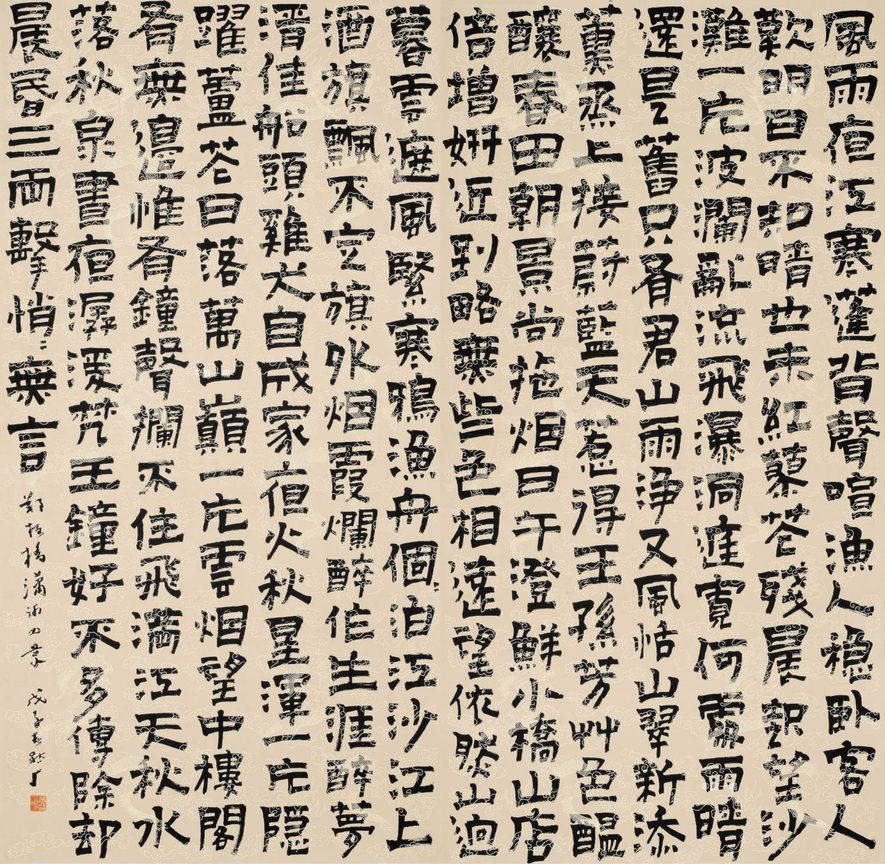 風雨夜江寒蓬背聲喧漁人穩臥客人
歎明日不知晴也未紅蓼花殘晨起望沙
灘一片波瀾亂流飛瀑洞進寬何處雨晴
還是舊只有君山雨淨又風恬山翠新添
薰蒸上接蔚藍天惹得王孫芳艸色醞
釀春田朝景尚拖烟日午澄鮮小橋山店
倍增妍近到略無些色相遠望依然山迥
暮雲遮風緊寒鴉漁舟個泊江沙江上
酒旗飄不定旗外烟霞爛醉作生涯醉夢
清佳船頭雞犬自成家夜火秋星渾一片隱
躍蘆花日落萬山巔一片雲烟望中樓閣
有無邊惟有鐘聲攔不住飛滿江天秋水
落秋泉晝夜潺湲梵王鐘好不多傳除却
晨昏三兩擊悄〻無言
鄭板橋瀟湘四景 戊子